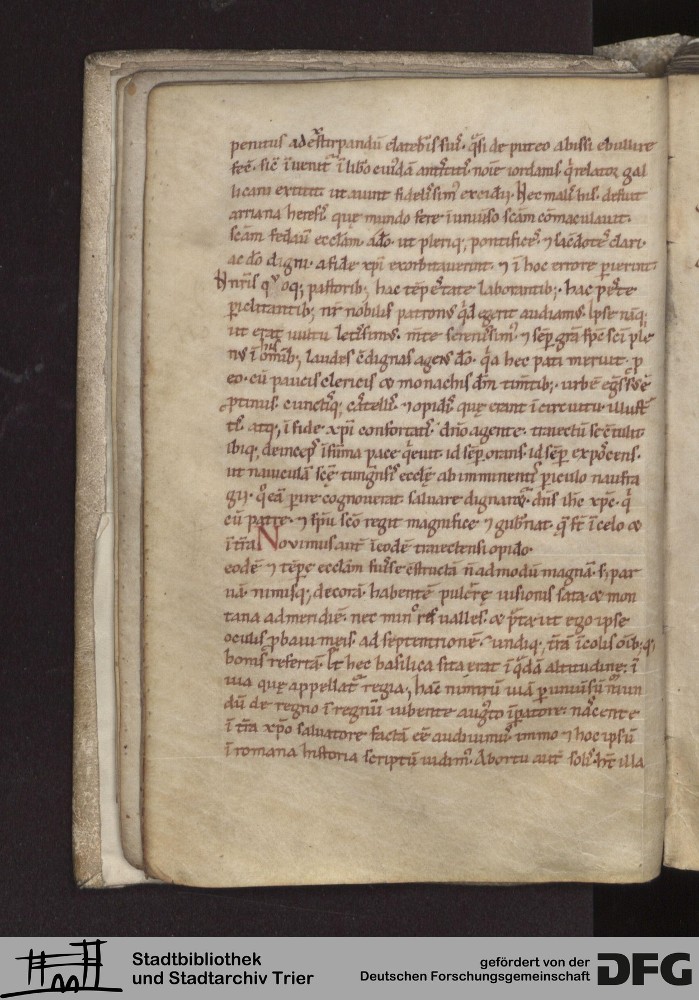 penitus ad exstirpandū e latebris suis. q̄si de puteo abissi ebullire
fec̄. sic̄ īvenit᷑ ī libro cuiꝰdā antiq̄tatis noīe iordanis. q̄ relator gal
licani extitit ut aiunt fidelissimꝰ excidii. Hec malis his. defuit
arriana heresis. quę mundo fere īuniuso scām cōmaculauit.
scām fedauit eccłam. adeo. ut pleriq; pontifices. ⁊ sacdotes clari.
ac do digni. a fide xp̄i exorbitauerint. ⁊ ī hoc errore perierint.
Hnr̄is quoq; pastorib; hac tēpestate laborantib;. hac peste
periclitantib; nr̄ nobilis patronꝰ qd egerit audiamꝰ. Ipse nāq;
ut erat uultu letissimꝰ. mēte serenissimꝰ. ⁊ semp gr̄a sp̄c sc̄i ple
nꝰ ī omīb; laudes cōdignas agens do. q̄a hec pati meruit. p
eo. cū paucis clericis & monachis dm̄ timētib;. urbē egressꝰ ē
ptinus. cunctisq; castellis. ⁊ opidis. quę erant ī circuitu. illustᷓ
tis. atq; ī fide xp̄i confortatis. dn̄o agente. traiectū se cōtulit
ibiq; deinceps ī sūma pace q̄euit. id semp orans. id semp exposcens.
ut nauiculā scę tungrēsis ecclę ab imminenti periculo naufra
gii. q̄ eā perire cognouerat. saluare dignaret᷑. dn̄s ihc xp̄c. q̄
cū patre. ⁊ sp̄u sc̄o regit magnifice ⁊ gubnat. q̄ sᷓt ī celo &
ī tr̄a. Novimus aut̄ ī eodē traiectensi opido.
eodē ⁊ tēpe eccłam fuisse cōstructā n̄ admodū magnā. s; par
uā. nimisq; decorā. habentē pulcrę uisionis sata. & mon
tana ad meridiē. nec minꝰ res ualles. & prata. ut ego ipse
oculis pbaui meis. ad septentrionē. ⁊ undiq; tr̄ā ī colis om̄ib; q;
bonis refertā. Is hec basilica sita erat ī q̄dā altitudine. ī
uia quę appellat᷑ regia, hāc nimirū uiā per uniuersū mun
dū de regno ī regnū iubente augꝰto īpatore. nascente
ī tr̄a xp̄o saluatore factā eē audiuimꝰ. immo ⁊ hoc ipsū
ī romana historia scriptū uidimꝰ. Ab ortu aut̄ solis. hr̄ illa
Stadtbibliothek
und Stadtarchiv Trier
gefördert von der
Deutschen Forschungsgemeinschaft
DFG